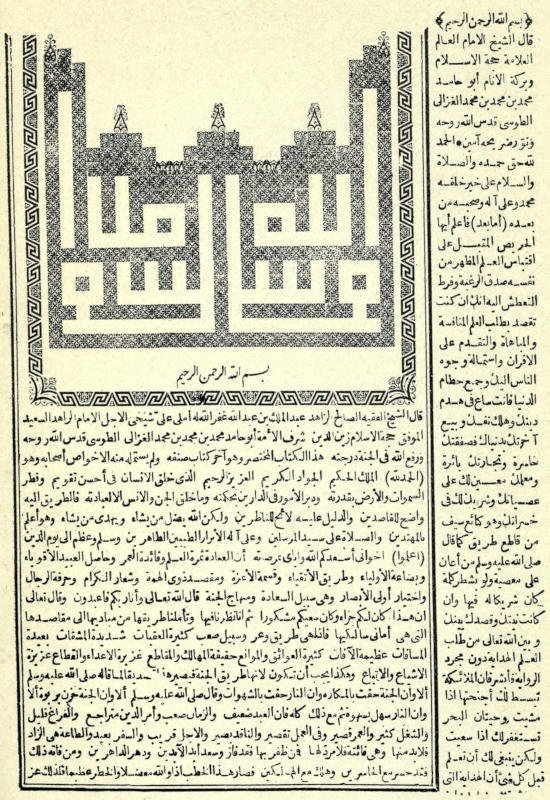 بسم الله الرحمن الرحيم
قال الشيخ الفقيه الصالح الزاهد عبد الملك بن عبد الله غفر الله له أملى على شيخي الاجل الامام الزاهد السعيد
الموفق حجة الاسلام زين الدين شرف الأمة أبو حامد محمد بن محمد بن محمد الغزالى الطوسى قدس الله روحه
ورفع الله فى الجنة درجته هذا الكتاب المختصر وهو آخر كتاب صنفه ولم يستمله منه الا خواص أصحابه وهو
(الحمد لله) الملك الحكيم الجواد الكريم العزيز الرحيم الذى خلق الانسان فى أحسن تقويم وفطر
السموات والأرض بقدرته ودبر الأمور فى الدارين بحكمته وما خلق الجن والانس الا لعبادته فالطريق اليه
واضح للقاصدين والدليل عليه لائح للناظرين ولكن الله يضل من يشاء ويهدى من يشاء وهو أعلم
بالمهتدين والصلاة على سيد المرسلين وعلى آله الأبرار الطيبين الطاهرين وسلم وعظم الى يوم الدين
(اعلموا) اخوانى أسعدكم الله واياى بمرضاته أن العبادة ثمرة العلم وفائدة العمر وحاصل العبيد الأقوياء
وبضاعة الأولياء وطريق الأتقياء وقسمة الأعزة ومقصد ذوى الهمة وشعار الكرام وحرفة الرجال
واختيار أولى الأبصار وهى سبيل السعادة ومنهاج الجنة قال الله تعالى وأنا ربكم فاعبدون وقال تعالى
ان هذا كان لكم جزاء وكان سعيكم مشكورا ثم انا نظرنا فيها وتأملنا طريقها من مباديها الى مقاصدها
التى هى أمانى سالكيها فاذا هى طريق وعر وسبيل صعب كثيرة العقبات شديدة المشقات بعيدة
المسافات عظيمة الآفات كثيرة العوائق والموانع خفية المهالك والمقاطع غزيرة الاعداء والقطاع عزيزة
الاشياع والاتباع وهكذا يجب أن تكون لانها طريق الجنة فيصير هذا تصديقا لما قاله صلى الله عليه وسلم
ألا وان الجنة حفت بالمكاره وان النار حفت بالشهوات وقال صلى الله عليه وسلم ألا وان الجنة حزن بربوة ألا
وان النار سهل بسهوة ثم مع ذلك كله فان العبد ضعيف والزمان صعب وأمر الدين متراجع والفراغ قليل
والشغل كثير والعمر قصير وفى العمل تقصير والناقد بصير والاجل قريب والسفر بعيد والطاعة هى الزاد
فلا بد منها وهى فائتة فلا مرد لها فمن ظفر بها فقد فاز وسعد أبد الآبدين ودهر الداهرين ومن فاته ذلك
فقد خسر مع الخاسرين وهلك مع الهالكين فصار هذا الخطب اذا والله معضلا والخطر عظيما فلذلك عز
﴿بسم الله الرحمن الرحيم﴾
قال الشيخ الامام العالم
العلامة حجة الاسلام
وبركة الأنام أبو حامد
محمد بن محمد بن محمد الغزالى
الطوسى قدس الله روحه
ونور ضريحه آمين الحمد
لله حق حمده والصلاة
والسلام على خير خلقه
محمد وعلى آله وصحبه من
بعده (أما بعد) فاعلم أيها
الحريص المقبل على
اقتباس العلم المظهر من
نفسه صدق الرغبة وفرط
التعطش اليه انك ان كنت
تقصد بطلب العلم المنافسة
والمباهاة والتقدم على
الاقران واستمالة وجوه
الناس اليك وجمع حطام
الدنيا فانت ساع فى هدم
دينك وهلاك نفسك وبيع
آخرتك بدنياك فصفقتك
خاسرة وتجارتك بائرة
ومعلمك معين لك على
عصيانك وشريك لك فى
خسرانك وهو كبائع سيف
من قاطع طريق كما قال
صلى الله عليه وسلم من أعان
على معصية ولو بشطر كلمة
كان شريكا له فيها وان
كانت نيتك وقصدك بينك
وبين الله تعالى من طلب
العلم الهداية دون مجرد
الرواية فأبشر فان الملائكة
تبسط لك أجنحتها اذا
مشيت وحيتان البحر
تستغفر لك اذا سعيت
ولكن ينبغى لك أن تعلم
قبل كل شئ أن الهداية التى